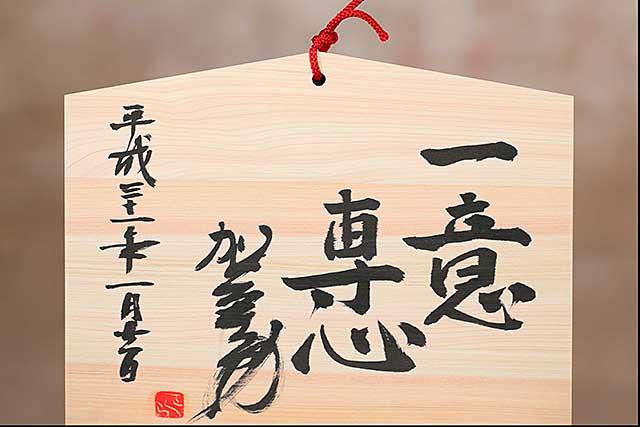 一意
専心
加
平成三十一年一月